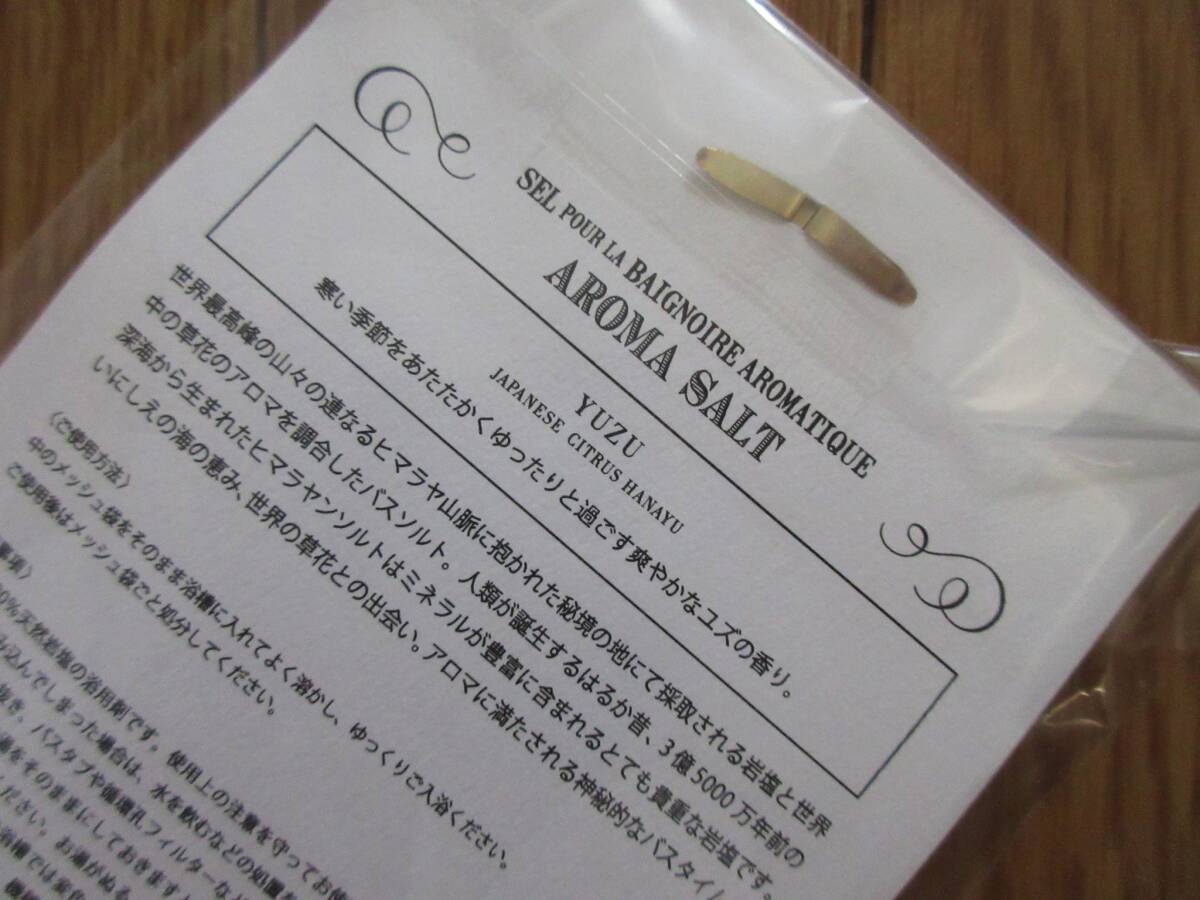 SEL POUR LA BAIGNOIRE AROMATIQUE
AROMA SALT
YUZU
JAPANESE CITRUS HANAYU
寒い季節をあたたかくゆったりと過ごす爽やかなユズの香り。
世界最高峰の山々の連なるヒマラヤ山脈に抱かれた秘境の地にて採取される岩塩と世界
中の草花のアロマを調合したバスソルト。人類が誕生するはるか昔、3億5000万年前の
深海から生まれたヒマラヤンソルトはミネラルが豊富に含まれるとても貴重な岩塩です。
いにしえの海の恵み、世界の草花との出会い。アロマに満たされる神秘的なバスタイ
〈ご使用方法〉
中のメッシュ袋をそのまま浴槽に入れてよく溶かし、ゆっくりご入浴ください。
ご使用後はメッシュ袋ごと処分してください。
0%天然岩塩の浴用剤です。使用上の注意を守ってお使
み込んでしまった場合は、水を飲むなどの処置を
抜き、バスタブや循環孔フィルターなど
湯をそのままにしておきますと
ください。お湯がぬる